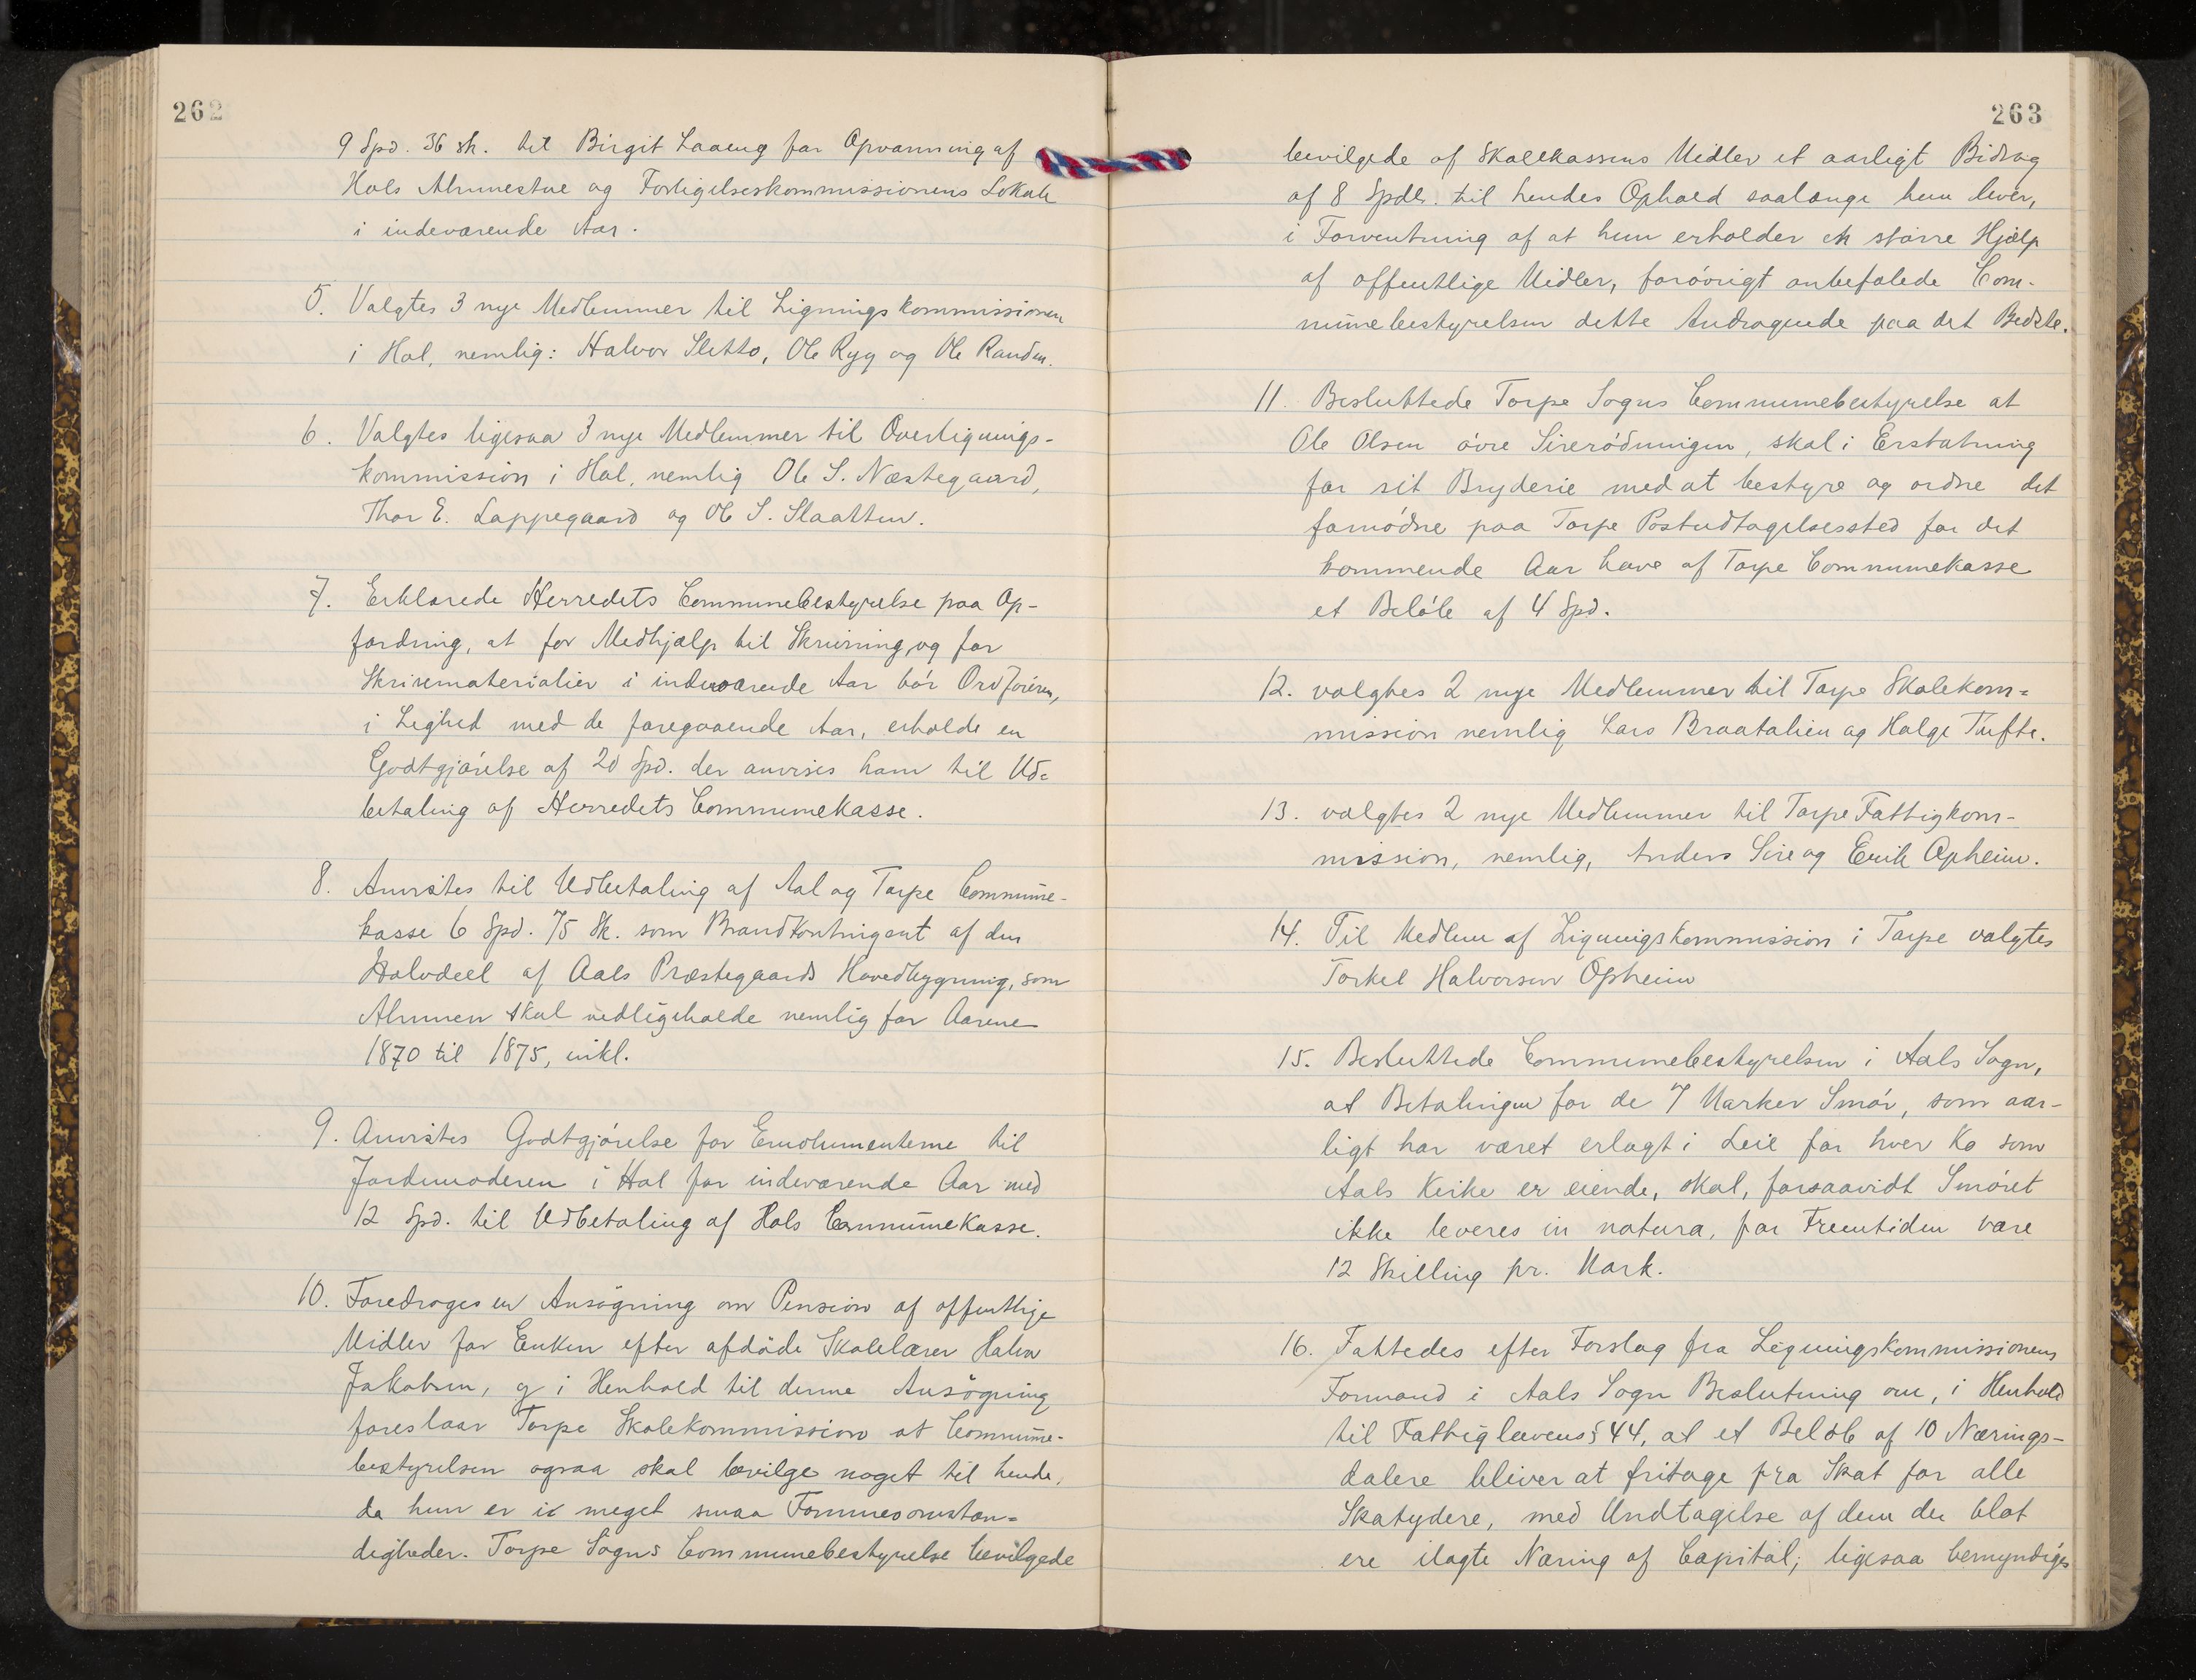 262
9 Spd. 36 sk. til Birgit Laaeug for Opvarmning af
Hols Almuestue og Forligelseskommissionens Lokale
i indeværende Aar.
5. Valgtes 3 nye Medlemmer til Ligningskommissionen
i Hol, nemlig: Halvor Sletto, Ole Ryg og Ole Randen.
6. Valgtes ligesaa 3 nye Medlemmer til Overlignings-
kommission i Hol, nemlig Ole S. Næstegaard,
Thor E. Lappegaard og Ole S. Slaatten.
7. Erklærede Herredets Communebestyrelse paa Op-
fordring, at for Medhjælp til Skrivning og for
Skrivematerialier i indeværende Aar bör Ordföreren,
i Lighed med de foregaaende Aar, erholde en
Godtgjörelse af 20 Spd. der anvises ham til Ud=
betaling af Herredets Communekasse.
8. Anvistes til Udbetaling af Aal og Torpe Commune-
kasse 6 Spd. 75 Sk. som Brandkontingent af den
Halvdeel af Aals Præstegaards Hovedbygning, som
Almuen skal vedligeholde nemlig for Aarene
1870 til 1875, inkl.
9. Anvistes Godtgjörelse for Emolumenterne til
Jordemoderen i Hol for indeværende Aar med
12 Spd. til Udbetaling af Hols Communekasse.
10. Foredroges en Ansögning om Pension af offentlige
Midler for Enken efter afdöde Skolelærer Halvor
Jakobsen, og i Henhold til denne Ansögning
foreslaar Torpe Skolekommission at Commune-
bestyrelsen ogsaa skal bevilge noget til hende,
da hun er i meget smaa Formuesomstæn=
digheder. Torpe Sogns Communebestyrelse bevilgede
263
bevilgede af Skolekassens Midler et aarligt Bidrag
af 8 Spdlr. til hendes Ophold saalænge hun lever,
i Forventning af at hun erholder en större Hjælp
af offentlige Midler, forövrigt anbefalede Com-
munebestyrelsen dette Andragende paa det Bedste.
11. Besluttede Torpe Sogns Communebestyrelse at
Ole Olsen övre Sireródningen, skal i Erstatning
for sit Bryderie med at bestyre og ordne det
fornödne paa Torpe Postudtagelsessted for det
kommende Aar have af Torpe Communekasse
et Belöb af 4 Spd.
12. valgtes 2 nye Medlemmer til Torpe Skolekom=
mission nemlig Lars Braatalien og Halge Tufte.
13. valgtes 2 nye Medlemmer til Torpe Fattigkom-
mission, nemlig, Anders Sire og Erik Opheim.
14. Til Medlem af Ligningskommission i Torpe valgtes
Torkel Halvorsen Opheim
15. Besluttede Communebestyrelsen i Aals Sogn,
at Betalingen for de 7 Marker Smör, som aar-
ligt har været erlagt i Leie for hver Ko som
Aals Kirke er eiende, skal, forsaavidt Smöret
ikke leveres in natura, for Fremtiden være
12 Skilling pr. Mark.
16. Fattedes efter Forslag fra Ligningskommissionens
Formand i Aals Sogn Beslutning om, i Henhold
til Fattiglovens § 44, at et Belöb af 10 Nærings-
dalere bliver at fritage fra Skat for alle
Skatydere, med Undtagelse af dem der blot
ere ilagte Næring af Capital; ligesaa bemyndiges